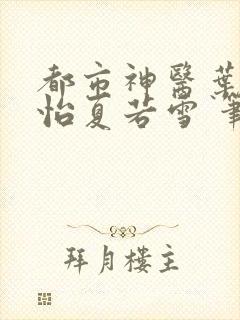 都市神醫葉
怡夏若雪
拜月樓主